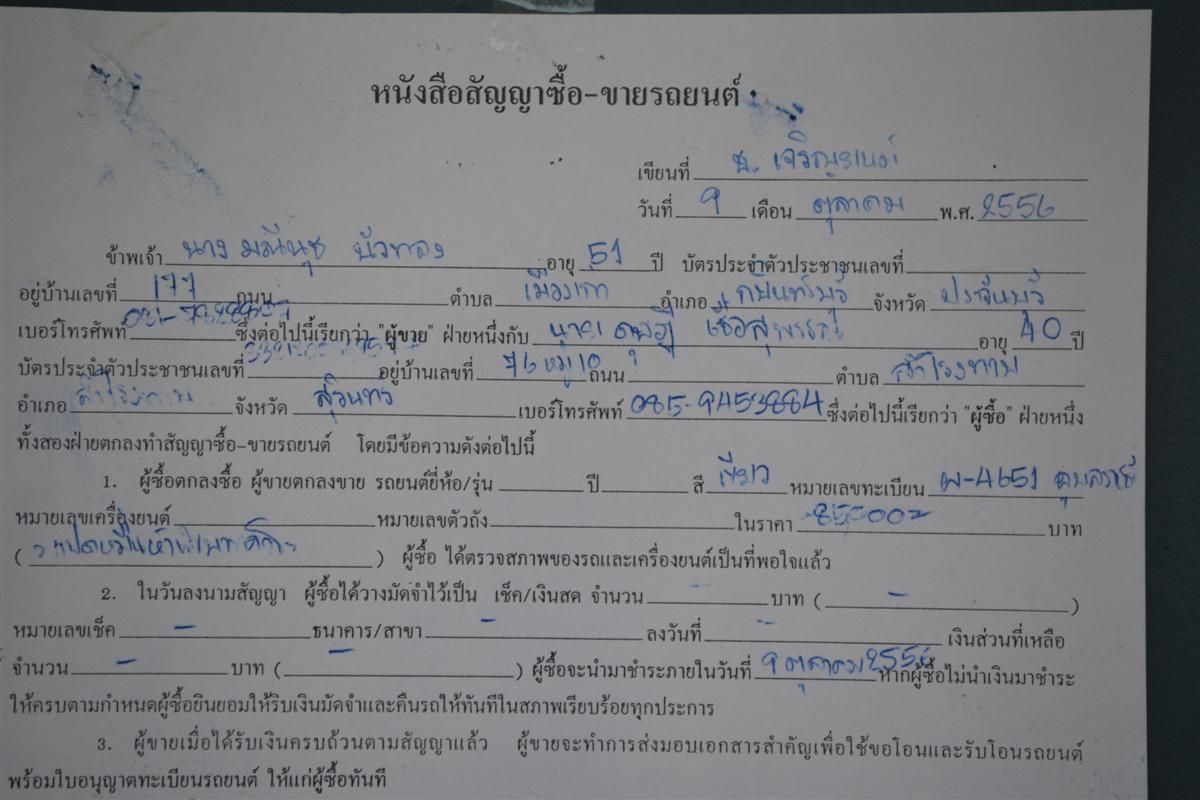 หนังสือสัญญาซื้อ-ขายรถยนต์
เขียนที่ ช. เจริญยนต์
วันที่ 9 เดือน ตุลาคม พ.ศ. 2556
ข้าพเจ้า นาง มณีนุช บัวทอง อายุ 51 ปี บัตรประจำตัวประชาชนเลขที่
อยู่บ้านเลขที่ 177 ถนน ตำบล เมืองเก่า อำเภอ กบินทร์บุรี จังหวัด ปราจีนบุรี
เบอร์โทรศัพท์ ซึ่งต่อไปนี้เรียกว่า "ผู้ขาย" ฝ่ายหนึ่งกับ นาย ดุษฎี เชื้อสุพรรณ อายุ 40 ปี
บัตรประจำตัวประชาชนเลขที่ อยู่บ้านเลขที่ 76 หมู่ 10 ถนน ตำบล สำโรงทาบ
อำเภอ สำโรงทาบ จังหวัด สุรินทร์ เบอร์โทรศัพท์ 085-9453884 ซึ่งต่อไปนี้เรียกว่า "ผู้ซื้อ" ฝ่ายหนึ่ง
ทั้งสองฝ่ายตกลงทำสัญญาซื้อ-ขายรถยนต์ โดยมีข้อความดังต่อไปนี้
1. ผู้ซื้อตกลงซื้อ ผู้ขายตกลงขาย รถยนต์ยี่ห้อ/รุ่น ปี สี เขียว หมายเลขทะเบียน ผ-4651
หมายเลขเครื่องยนต์ หมายเลขตัวถัง ในราคา 85000 บาท
( ) ผู้ซื้อ ได้ตรวจสภาพของรถและเครื่องยนต์เป็นที่พอใจแล้ว
2. ในวันลงนามสัญญา ผู้ซื้อได้วางมัดจำไว้เป็น เช็ค/เงินสด จำนวน - บาท ( - )
หมายเลขเช็ค - ธนาคาร/สาขา - ลงวันที่ - เงินส่วนที่เหลือ
จำนวน - บาท ( - ) ผู้ซื้อจะนำมาชำระภายในวันที่ 9 ตุลาคม 2556 หากผู้ซื้อไม่นำเงินมาชำระ
ให้ครบตามกำหนดผู้ซื้อยินยอมให้ริบเงินมัดจำและคืนรถให้ทันทีในสภาพเรียบร้อยทุกประการ
3. ผู้ขายเมื่อได้รับเงินครบถ้วนตามสัญญาแล้ว ผู้ขายจะทำการส่งมอบเอกสารสำคัญเพื่อใช้ขอโอนและรับโอนรถยนต์
พร้อมใบอนุญาตทะเบียนรถยนต์ ให้แก่ผู้ซื้อทันที